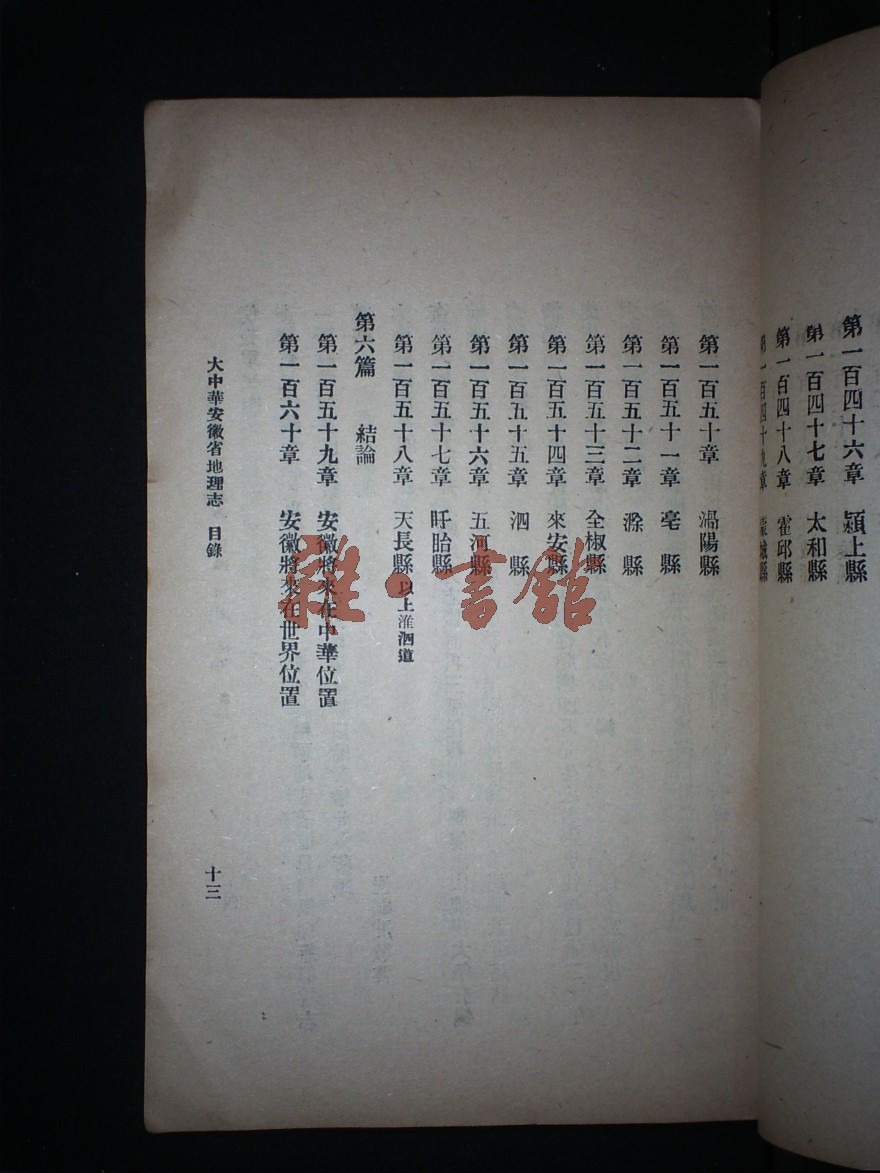 第一百四十六章　潁上縣
第一百四十七章　太和縣
第一百四十八章　霍邱縣
第一百四十九章　蒙城縣
第一百五十章　渦陽縣
第一百五十一章　亳縣
第一百五十二章　滁縣
第一百五十三章　全椒縣
第一百五十四章　來安縣
第一百五十五章　泗縣
第一百五十六章　五河縣
第一百五十七章　盱眙縣
第一百五十八章　天長縣 以上淮泗道
第六篇　結論
第一百五十九章　安徽將來在中華位置
第一百六十章　安徽將來在世界位置
大中華安徽省地理志　目錄
十三
雜·書館